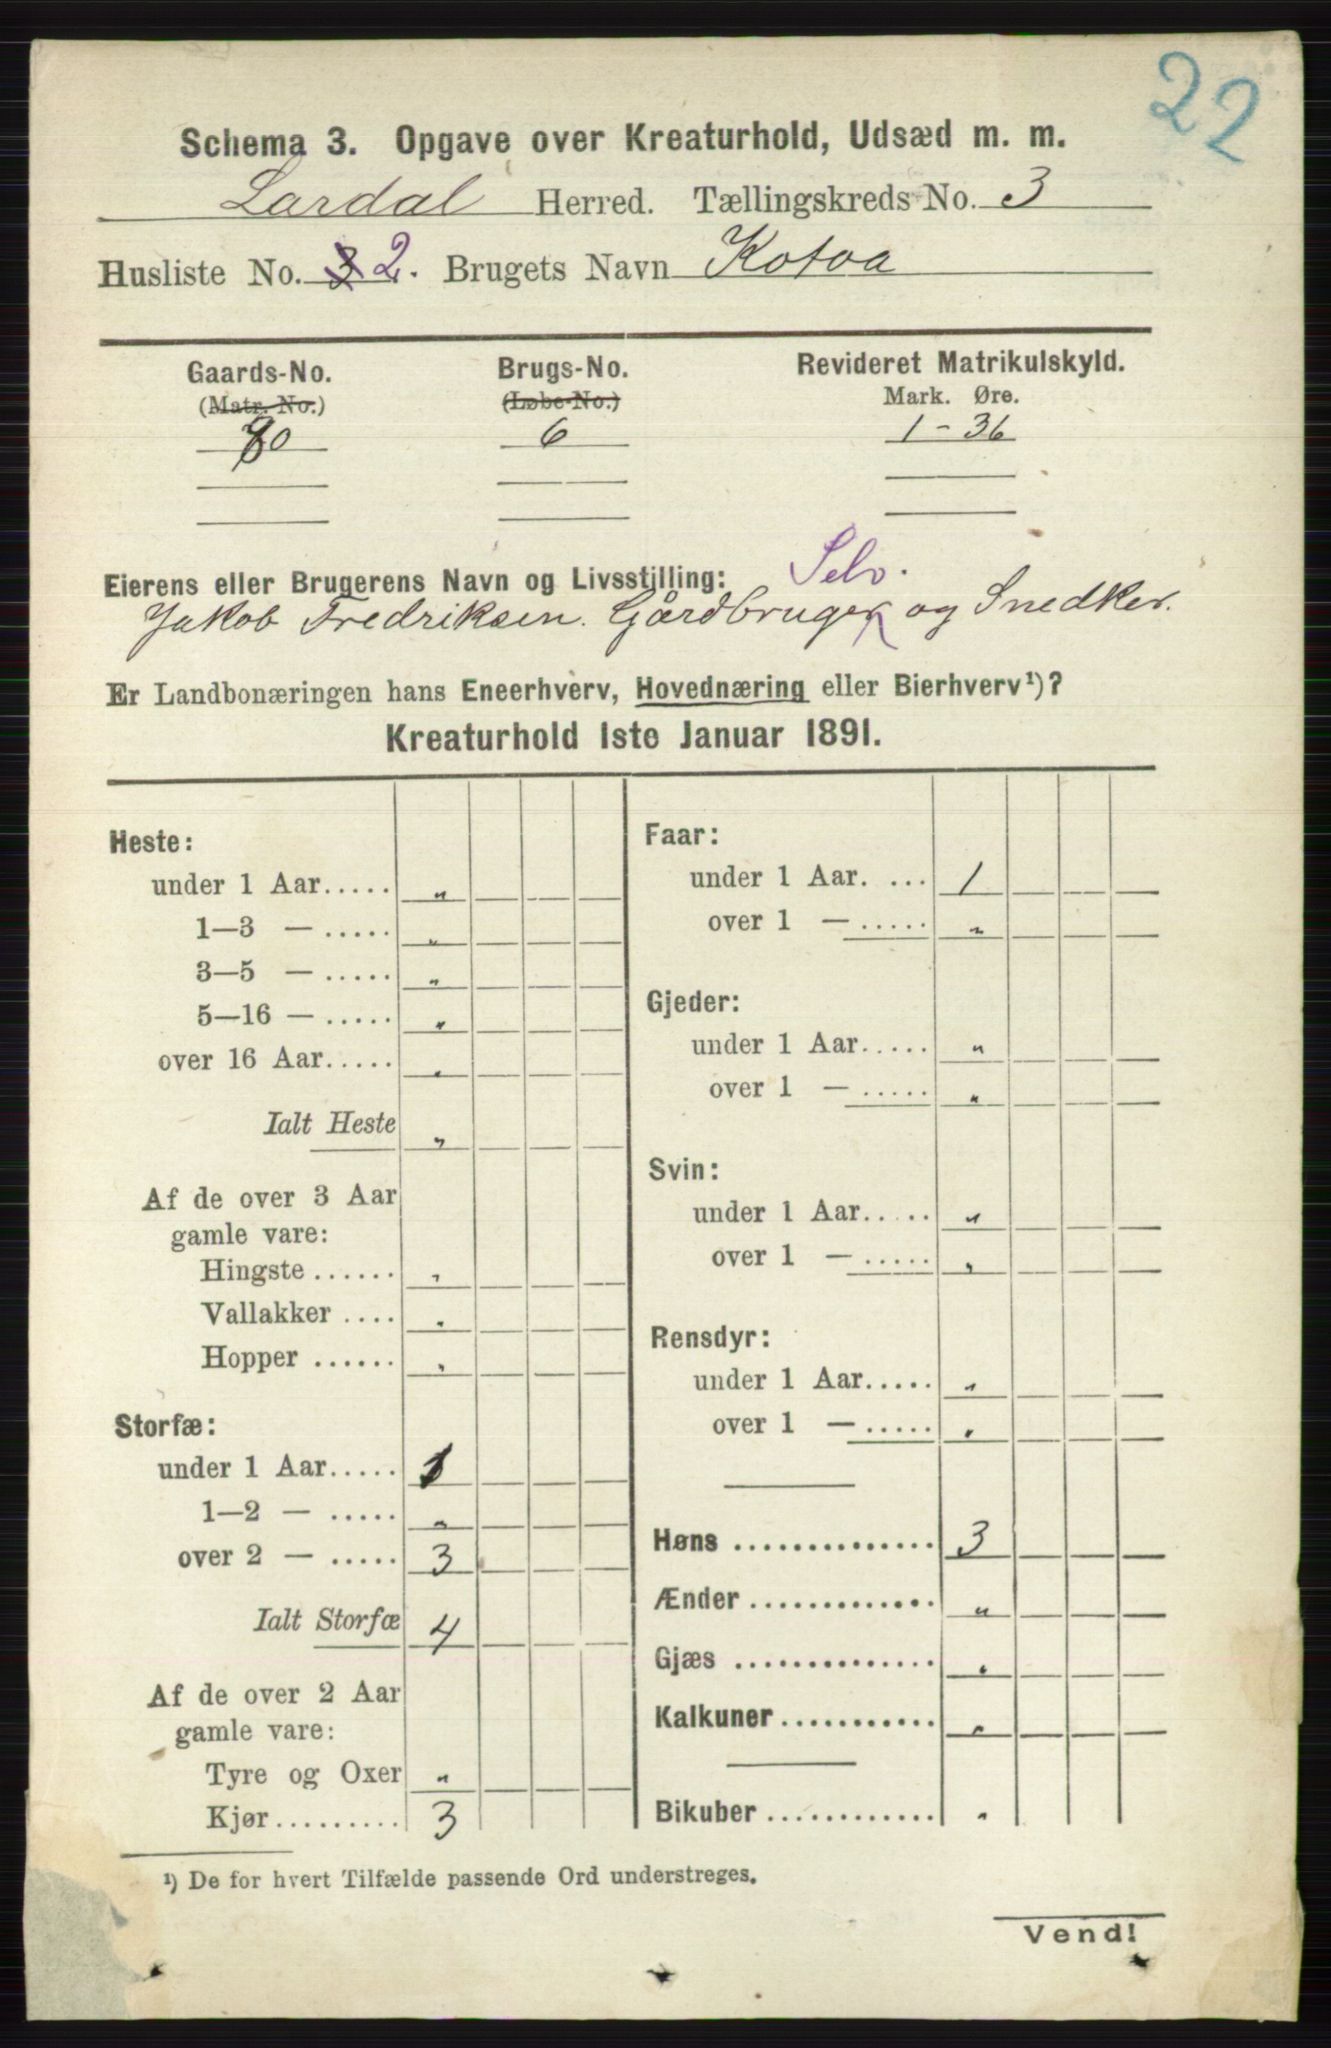 22
Schema 3. Opgave over Kreaturhold, Udsæd m. m.
Lardal Herred. Tællingskreds No. 3
Husliste No. 3 2. Brugets Navn Kotoa
Gaards-No. Brugs-No. Revideret Matrikulskyld.
(Matr. No.) (Løbe-No.) Mark. Øre.
80 6 1-36
Eierens eller Brugerens Navn og Livsstilling: Selv.
Jakob Fredriksen. Gårdbruger og Snedker.
Er Landbonæringen hans Eneerhverv, Hovednæring eller Bierhverv¹)?
Kreaturhold 1ste Januar 1891.
Heste:
under 1 Aar..... "
1—3 — ..... "
3—5 — ..... "
5—16 — ..... "
over 16 Aar..... "
Ialt Heste "
Af de over 3 Aar
gamle vare:
Hingste ...... "
Vallakker .... "
Hopper ...... "
Storfæ:
under 1 Aar..... 1
1—2 — ..... "
over 2 — ..... 3
Ialt Storfæ 4
Af de over 2 Aar
gamle vare:
Tyre og Oxer "
Kjør......... 3
Faar:
under 1 Aar. ... 1
over 1 — ..... "
Gjeder:
under 1 Aar..... "
over 1 — ..... "
Svin:
under 1 Aar..... "
over 1 — ..... "
Rensdyr:
under 1 Aar..... "
over 1 — ..... "
Høns .............. 3
Ænder ............. "
Gjæs .............. "
Kalkuner ........... "
Bikuber ............ "
¹) De for hvert Tilfælde passende Ord understreges.
Vend!